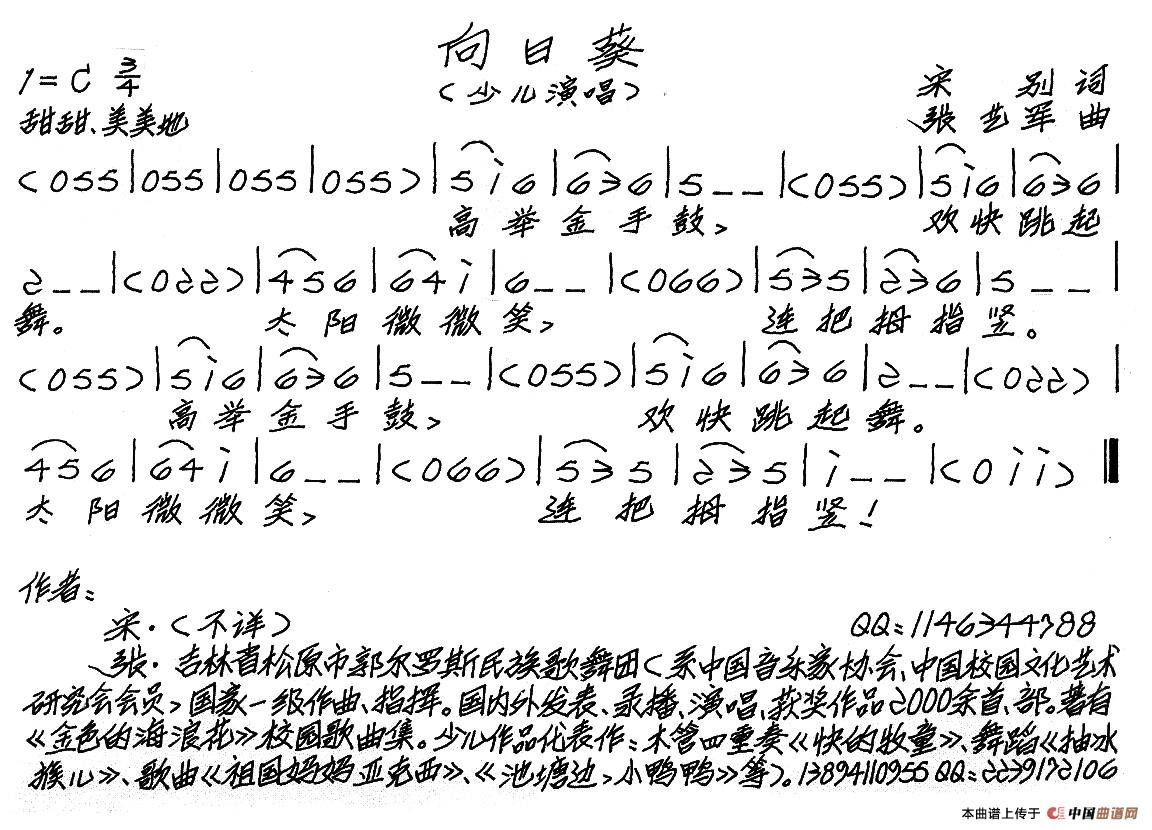 向日葵
1=C 3/4
(少儿演唱)
宋 别 词
甜甜、美美地
张艺军 曲
(055|055|055|055)|5i6|636|5--|(055)|5i6|636|
高举金手鼓, 欢快跳起
2--|(022)|456|64i|6--|(066)|535|236|5--|
舞。 太阳微微笑, 连把拇指竖。
(055)|5i6|636|5--|(055)|5i6|636|2--|(022)|
高举金手鼓, 欢快跳起舞。
456|64i|6--|(066)|535|235|i--|(0ii)‖
太阳微微笑, 连把拇指竖!
作者:
宋·(不详) QQ:1146344788
张·吉林省松原市郭尔罗斯民族歌舞团(系中国音乐家协会、中国校园文化艺术
研究会会员,国家一级作曲、指挥。国内外发表、录播、演唱、获奖作品2000余首、部。著有
《金色的海浪花》校园歌曲集。少儿作品代表作:木管四重奏《快的牧童》、舞蹈《抽冰
猴儿》、歌曲《祖国妈妈亚克西》、《池塘边,小鸭鸭》等)。13894110955 QQ:2239172106
本曲谱上传于 中国曲谱网